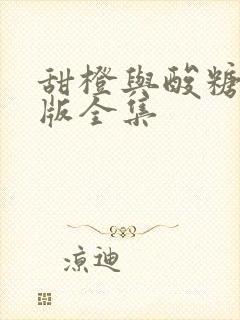 甜橙與酸糖
版全集
涼迪